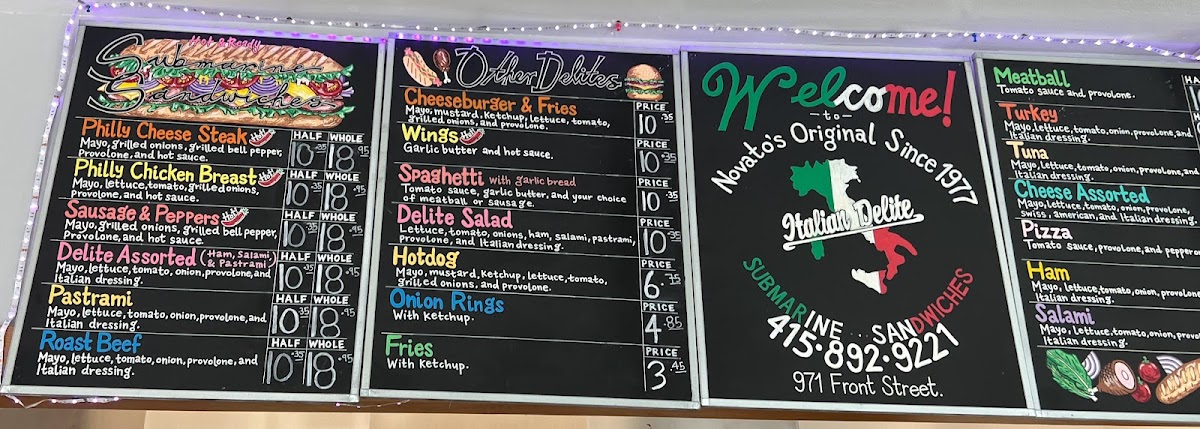 Hot & Ready
Submarine
Sandwiches
Philly Cheese Steak Hot! HALF WHOLE
Mayo, grilled onions, grilled bell pepper, 10.35 18.95
Provolone, and hot sauce.
Philly Chicken Breast Hot! HALF WHOLE
Mayo, lettuce, tomato, grilled onions, 10.35 18.95
Provolone, and hot sauce.
Sausage & Peppers Hot! HALF WHOLE
Mayo, grilled onions, grilled bell pepper, 10.35 18.95
Provolone, and hot sauce.
Delite Assorted (Ham, Salami & Pastrami) HALF WHOLE
Mayo, lettuce, tomato, onion, provolone, and 10.35 18.95
Italian dressing.
Pastrami HALF WHOLE
Mayo, lettuce, tomato, onion, provolone, and 10.35 18.95
Italian dressing.
Roast Beef HALF WHOLE
Mayo, lettuce, tomato, onion, provolone, and 10.35 18.95
Italian dressing.
Other Delites
Cheeseburger & Fries PRICE
Mayo, mustard, Ketchup, lettuce, tomato, 10.35
grilled onions, and provolone.
Wings Hot! PRICE
Garlic butter and hot sauce. 10.35
Spaghetti with garlic bread PRICE
Tomato sauce, garlic butter, and your choice 10.35
of meatball or sausage.
Delite Salad PRICE
Lettuce, tomato, onions, ham, salami, pastrami, 10.35
provolone, and Italian dressing.
Hotdog PRICE
Mayo, mustard, Ketchup, lettuce, tomato, 6.75
grilled onions, and provolone.
Onion Rings PRICE
With Ketchup. 4.85
Fries PRICE
With Ketchup. 3.45
Welcome!
-to-
Novato's Original Since 1977
Italian Delite
SUBMARINE... SANDWICHES
415.892.9221
971 Front Street.
Meatball
Tomato sauce and provolone.
Turkey
Mayo, lettuce, tomato, onion, provolone, and
Italian dressing.
Tuna
Mayo, Lettuce, tomato, onion, provolone, and
Italian dressing.
Cheese Assorted
Mayo, Lettuce, tomato, onion, provolone,
Swiss, american, and Italian dressing
Pizza
Tomato sauce, provolone, and
Ham
Mayo, lettuce, tomato, onion, provolone,
Italian dressing.
Salami
Mayo, Lettuce, tomato, onion,
Italian dressing.